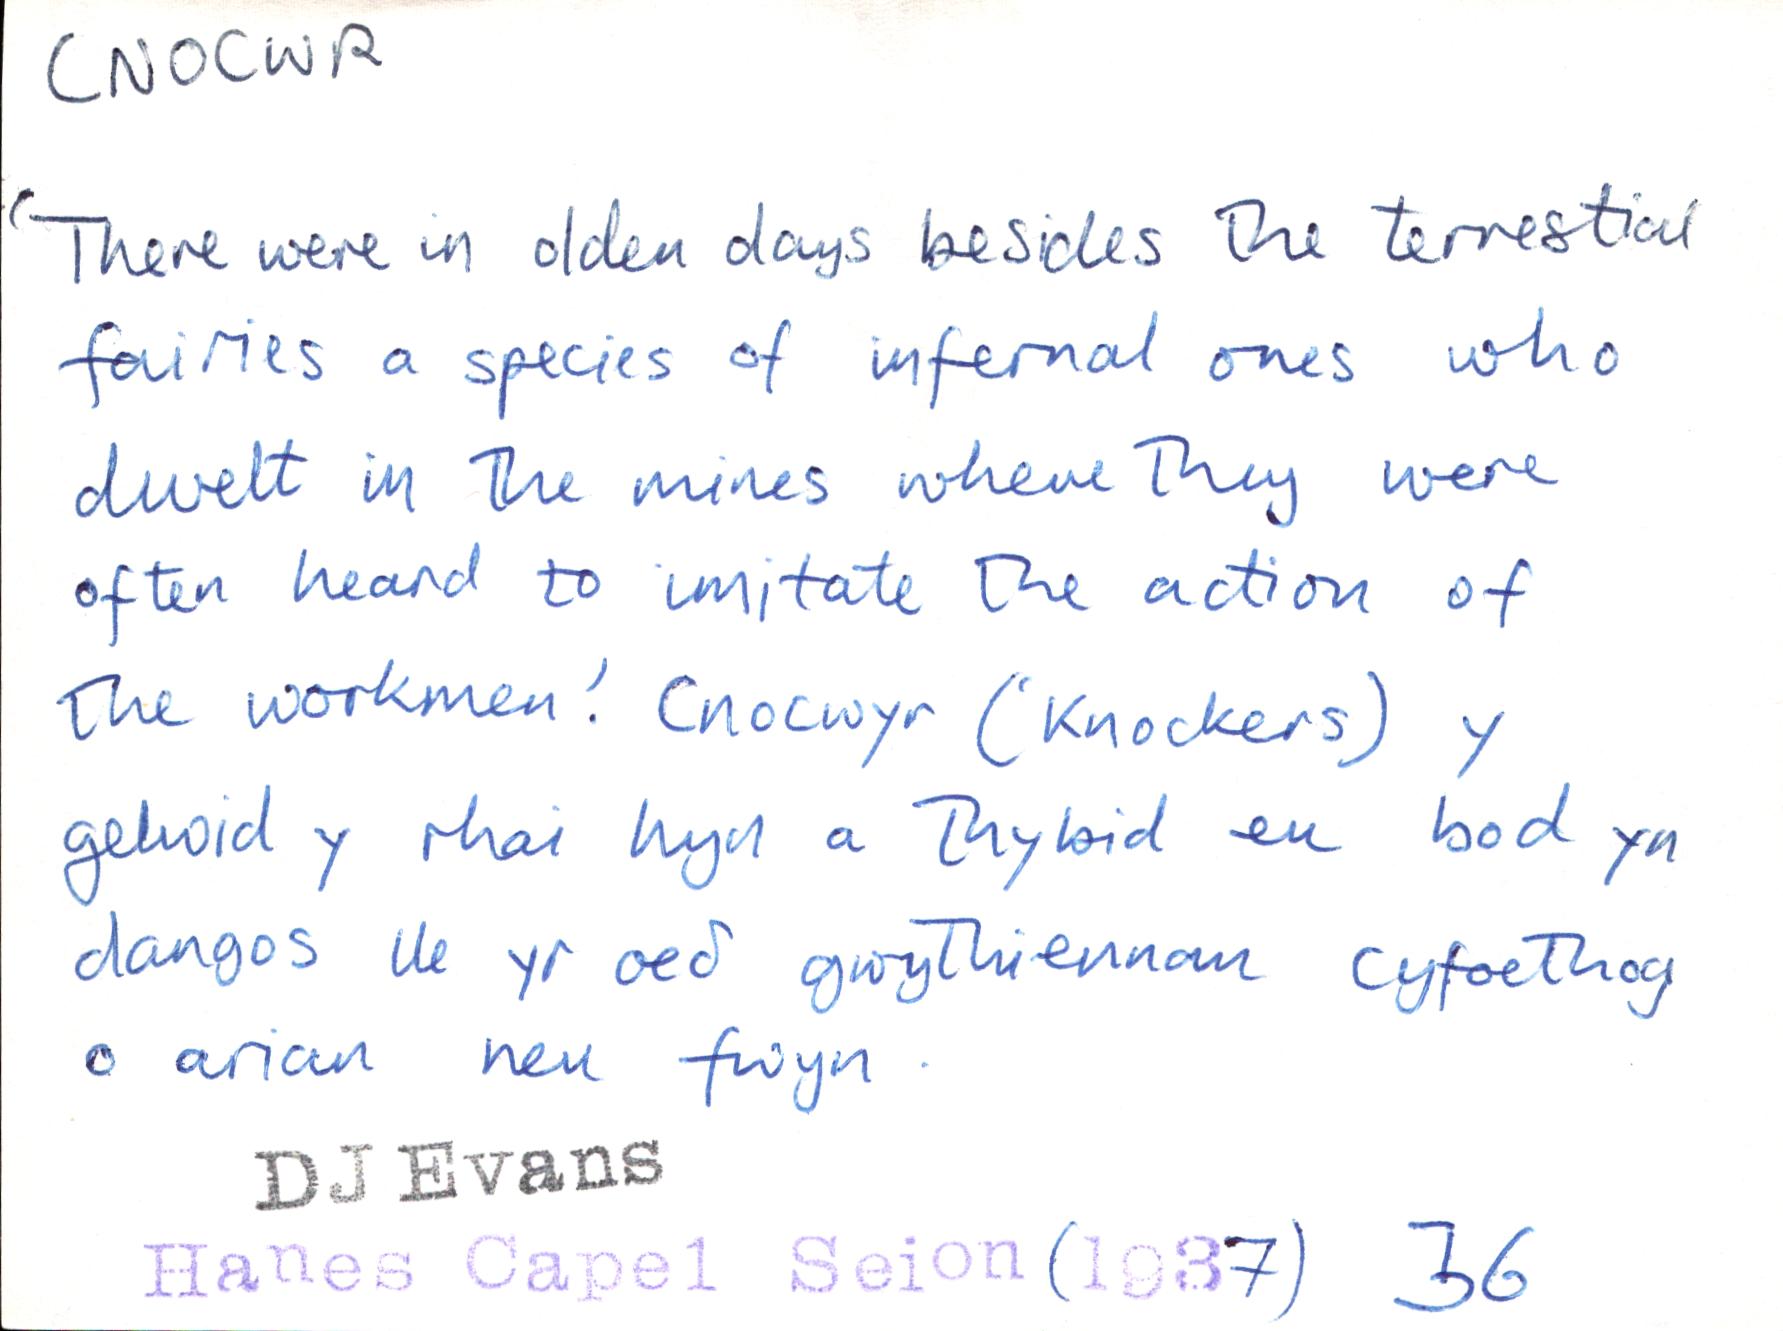 CNOCWR
'There were in olden days besides the terrestial
fairies a species of infernal ones who
dwelt in the mines where they were
often heard to imitate the action of
the workmen'. Cnocwyr ('Knockers) y
gelwid y rhai hyn a thybid eu bod yn
dangos lle yr oeð gwythiennau cyfoethog
o arian neu fwyn.
DJ Evans
Hanes Capel Seion (1937) 36